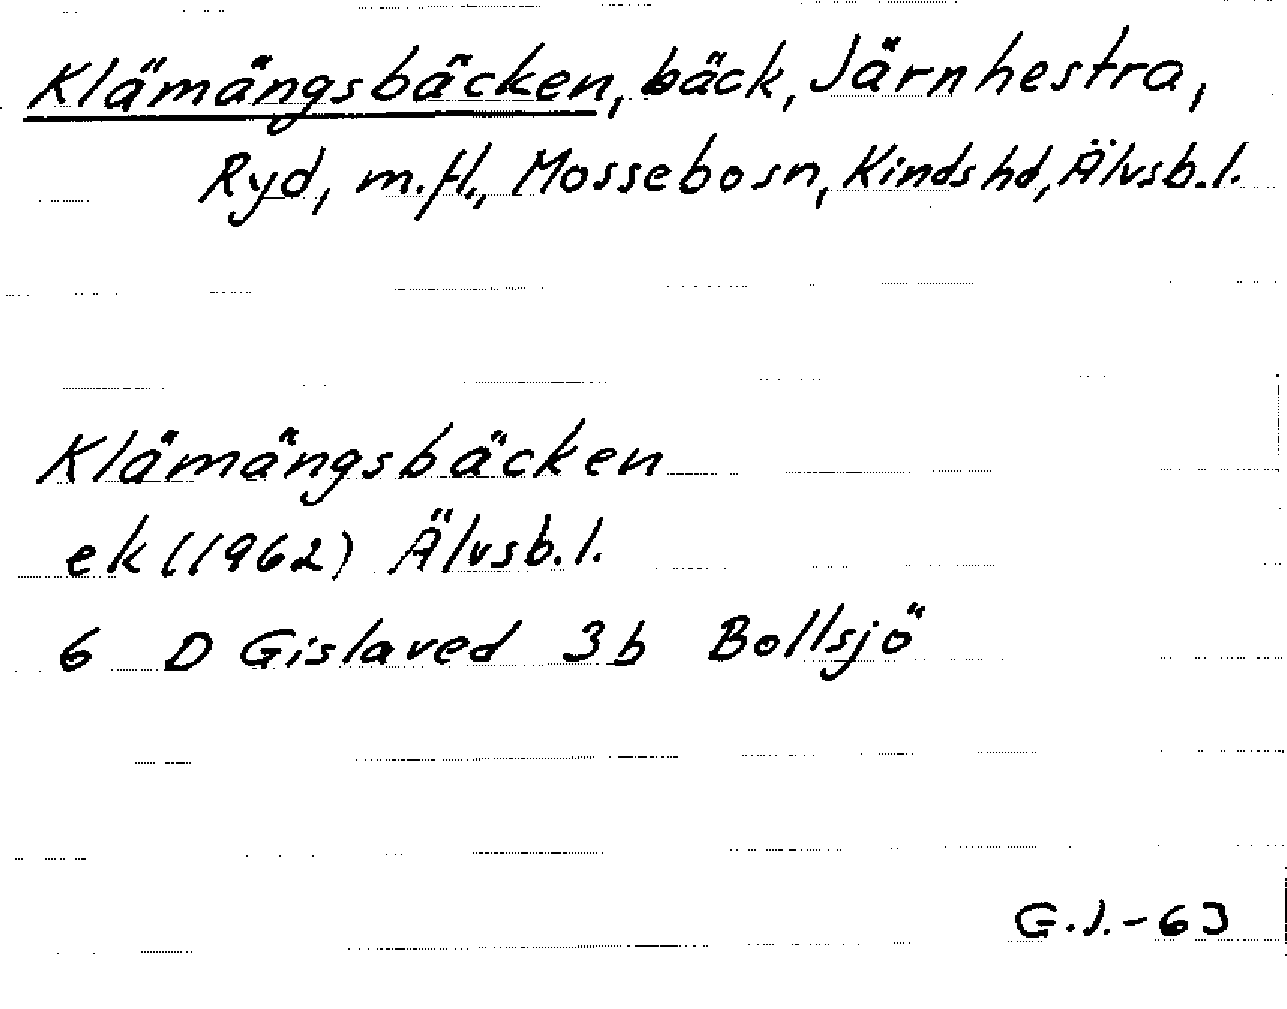 Klämängsbäcken, bäck, Järnhestra,
Ryd, m.fl., Mossebosn, Kindshd, Älvsb.l.
Klämängsbäcken
ek (1962) Älvsb.l.
6 D Gislaved 3b Bollsjö
G.J.-63